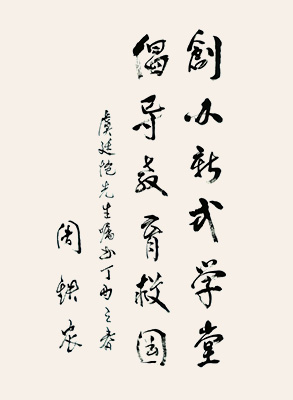 創办新式学堂
倡导教育救国
虞廷愷先生嘱书丁酉之春
周铁农